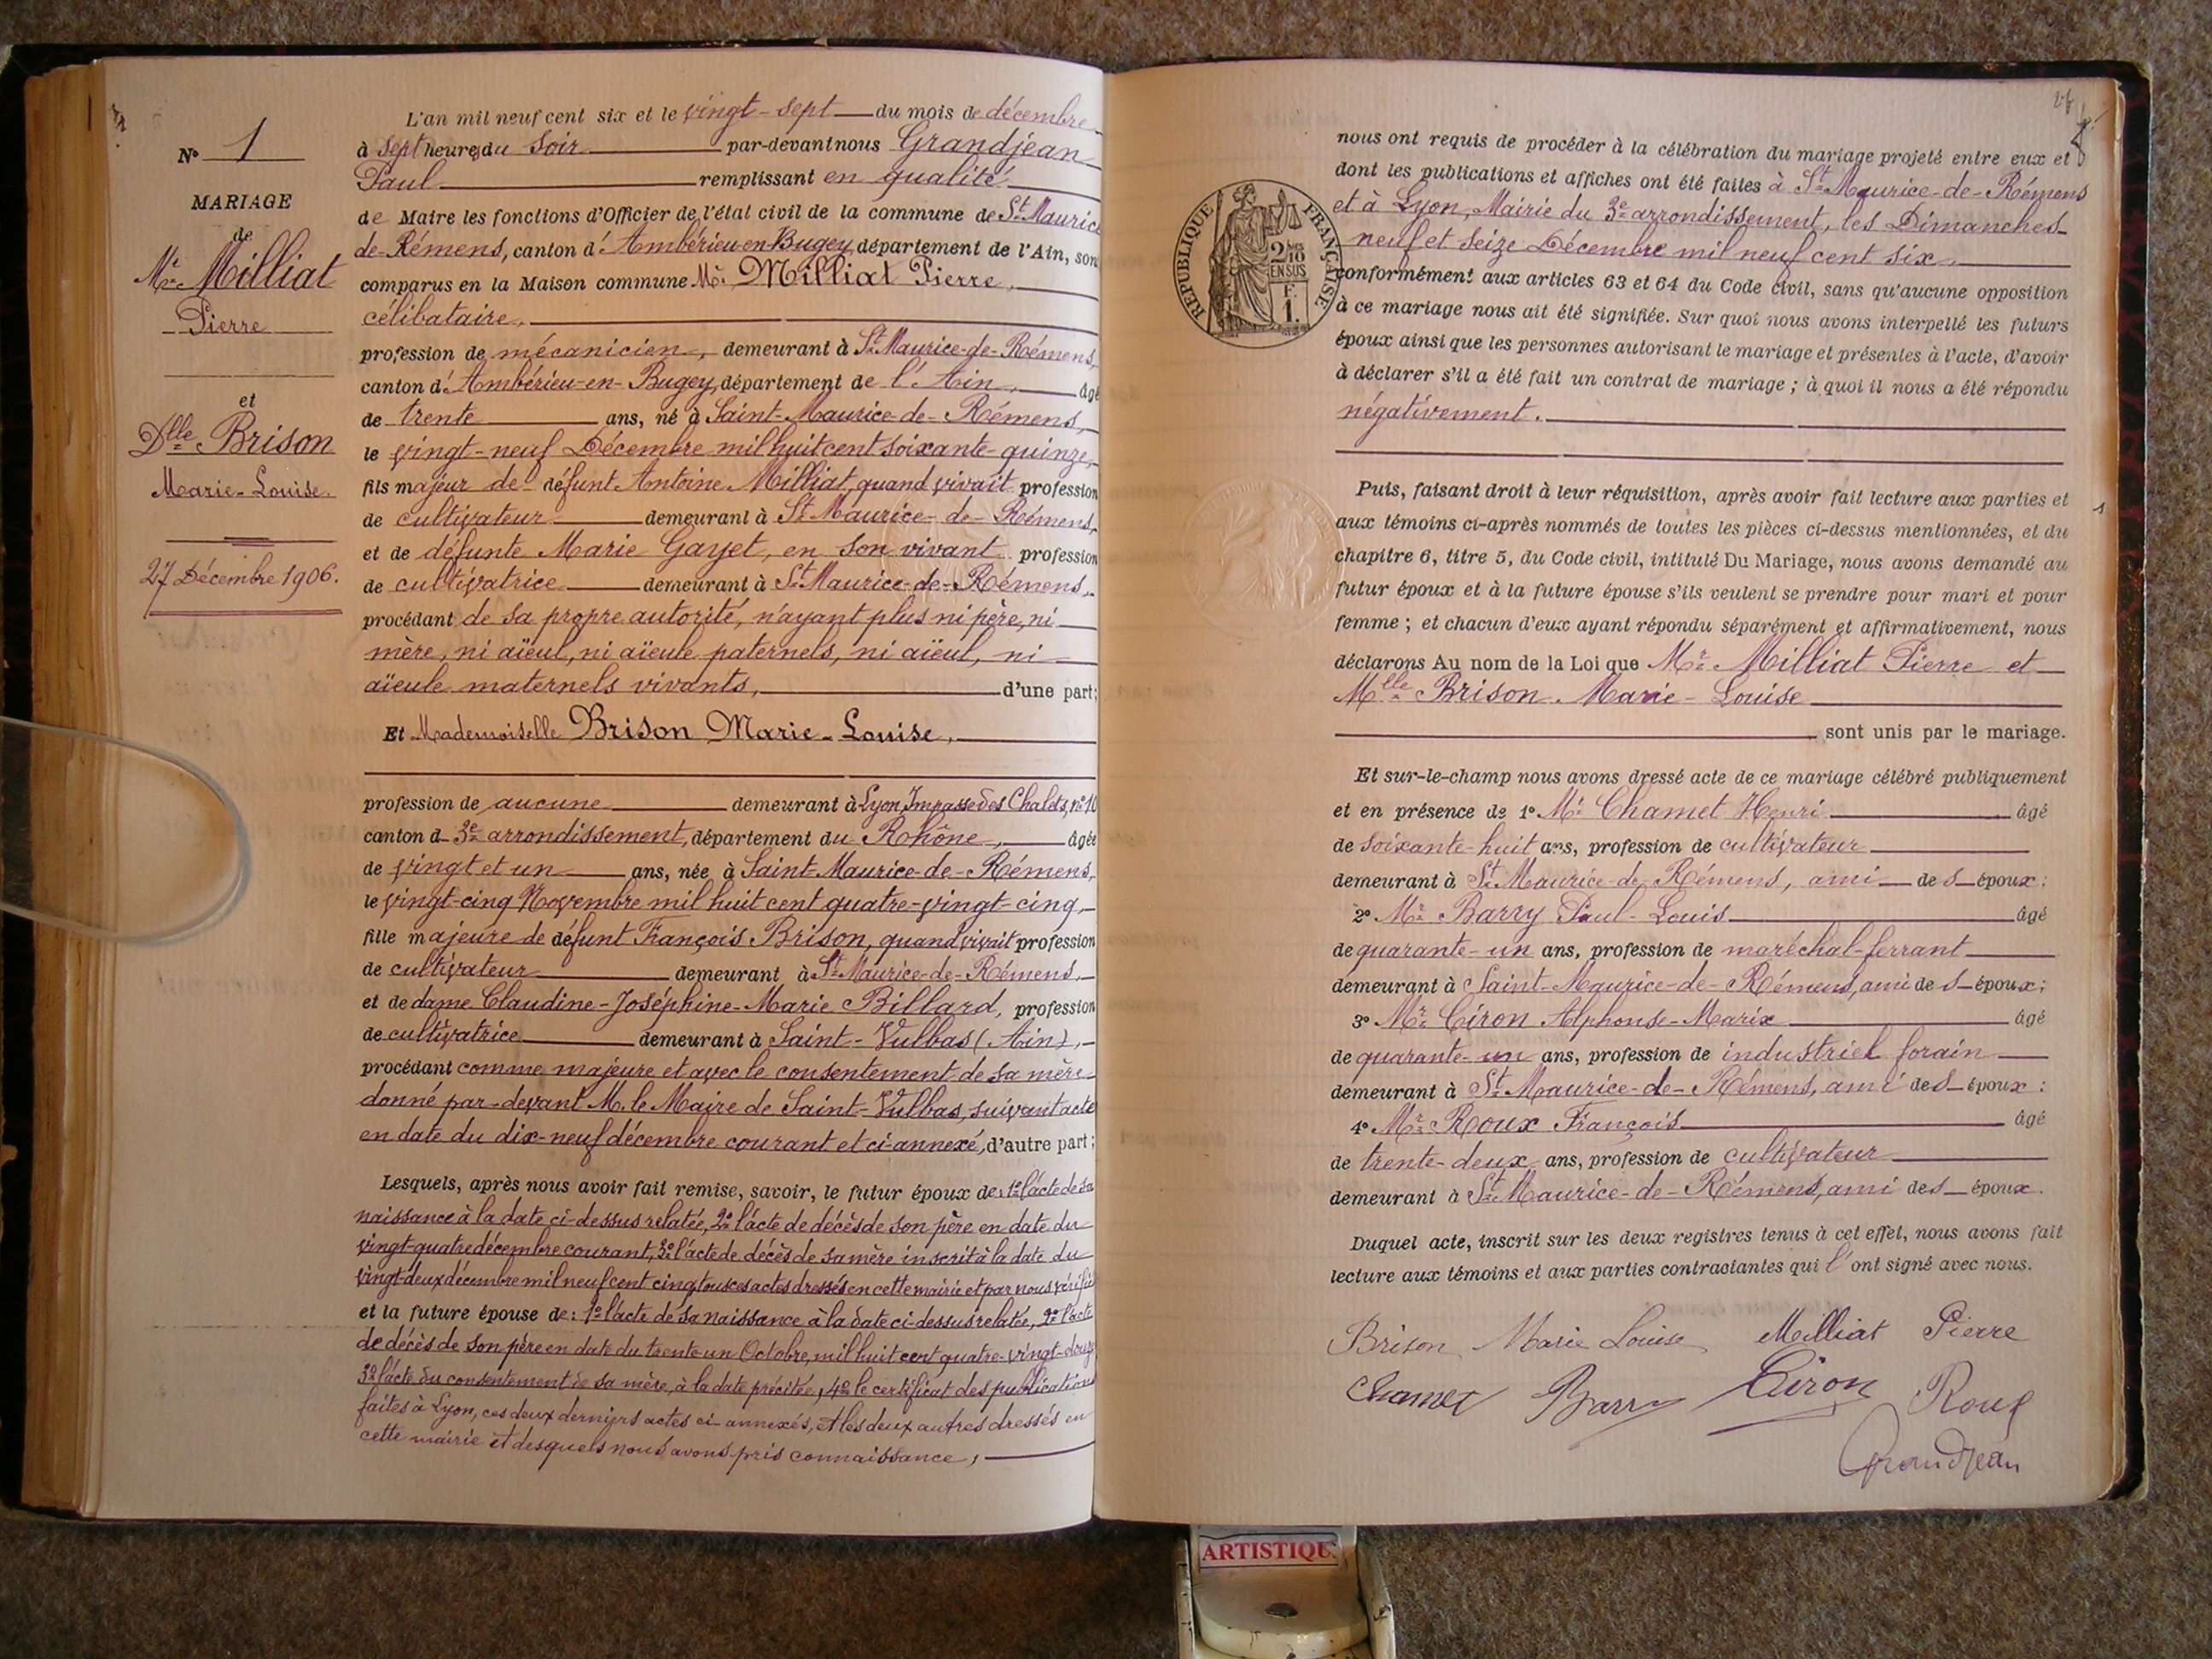 N° 1
MARIAGE
de
Mr. Milliat
Pierre
et
Dlle Brison
Marie-Louise.
27 Décembre 1906.
L'an mil neuf cent six et le vingt-sept du mois de décembre
à sept heures du soir par-devant nous Grandjean
Paul remplissant en qualité
de Maire les fonctions d'Officier de l'état civil de la commune de St. Maurice
de-Rémens, canton d'Ambérieu-en-Bugey, département de l'Ain, son
comparus en la Maison commune Mr. Milliat Pierre,
célibataire,
profession de mécanicien, demeurant à St. Maurice-de-Rémens,
canton d'Ambérieu-en-Bugey, département de l'Ain, âgé
de trente ans, né à Saint-Maurice-de-Rémens,
le vingt-neuf Décembre mil huit cent soixante-quinze,
fils majeur de défunt Antoine Milliat, quand vivait profession
de cultivateur demeurant à St Maurice-de-Rémens,
et de défunte Marie Gayet, en son vivant profession
de cultivatrice demeurant à St. Maurice-de-Rémens,
procédant de sa propre autorité, n'ayant plus ni père, ni
mère, ni aïeul, ni aïeule paternels, ni aïeul, ni
aïeule maternels vivants, d'une part;
Et Mademoiselle Brison Marie-Louise,
profession de aucune demeurant à Lyon Impasse des Chalets, n° 10
canton d 3e arrondissement, département du Rhône, âgée
de vingt et un ans, née à Saint-Maurice-de-Rémens,
le vingt-cinq Novembre mil huit cent quatre-vingt-cinq,
fille majeure de défunt François Brison, quand vivait profession
de cultivateur demeurant à St. Maurice-de-Rémens,
et de dame Claudine-Joséphine-Marie Billard, profession
de cultivatrice demeurant à Saint-Vulbas (Ain),
procédant comme majeure et avec le consentement de sa mère
donné par-devant M. le Maire de Saint-Vulbas, suivant acte
en date du dix-neuf décembre courant et ci-annexé, d'autre part;
Lesquels, après nous avoir fait remise, savoir, le futur époux de: 1° l'acte de sa
naissance à la date ci-dessus relatée, 2° l'acte de décès de son père en date du
vingt-quatre décembre courant, 3° l'acte de décès de sa mère inscrit à la date du
vingt-deux décembre mil neuf cent cinq tous ces actes dressés en cette mairie et par nous vérifié
et la future épouse de: 1° l'acte de sa naissance à la date ci-dessus relatée, 2° l'acte
de décès de son père en date du trente-un Octobre, mil huit cent quatre-vingt-douze
3° l'acte du consentement de sa mère, à la date précitée, 4° le certificat des publications
faites à Lyon, ces deux derniers actes ci-annexés, et les deux autres dressés en
cette mairie et desquels nous avons pris connaissance,
nous ont requis de procéder à la célébration du mariage projeté entre eux et
dont les publications et affiches ont été faites à St. Maurice-de-Rémens
et à Lyon, Mairie du 3e arrondissement, les Dimanches
neuf et seize Décembre mil neuf cent six.
conformément aux articles 63 et 64 du Code civil, sans qu'aucune opposition
à ce mariage nous ait été signifiée. Sur quoi nous avons interpellé les futurs
époux ainsi que les personnes autorisant le mariage et présentes à l'acte, d'avoir
à déclarer s'il a été fait un contrat de mariage; à quoi il nous a été répondu
négativement.
RÉPUBLIQUE FRANÇAISE
2/10
EN SUS
F.
1.
Puis, faisant droit à leur réquisition, après avoir fait lecture aux parties et
aux témoins ci-après nommés de toutes les pièces ci-dessus mentionnées, et du
chapitre 6, titre 5, du Code civil, intitulé Du Mariage, nous avons demandé au
futur époux et à la future épouse s'ils veulent se prendre pour mari et pour
femme; et chacun d'eux ayant répondu séparément et affirmativement, nous
déclarons Au nom de la Loi que Mr. Milliat Pierre et
Mlle Brison Marie-Louise
sont unis par le mariage.
Et sur-le-champ nous avons dressé acte de ce mariage célébré publiquement
et en présence de 1° Mr. Chamet Henri âgé
de soixante-huit ans, profession de cultivateur
demeurant à St. Maurice-de-Rémens, ami des époux;
2° Mr. Barry Paul-Louis âgé
de quarante-un ans, profession de maréchal-ferrant
demeurant à Saint-Maurice-de-Rémens, ami des époux;
3° Mr. Ciron Alphonse-Marix âgé
de quarante-un ans, profession de industriel forain
demeurant à St. Maurice-de-Rémens, ami des époux;
4° Mr. Roux François âgé
de trente-deux ans, profession de cultivateur
demeurant à St. Maurice-de-Rémens, ami des époux.
Duquel acte, inscrit sur les deux registres tenus à cet effet, nous avons fait
lecture aux témoins et aux parties contractantes qui l'ont signé avec nous.
Brison Marie Louise Milliat Pierre
Chamet Barry Ciron Roux
Grandjean
ARTISTIQU